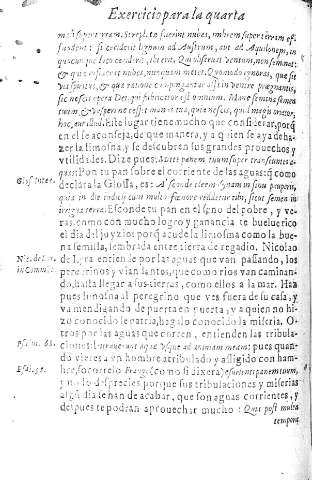 Exercicio para la quarta
mali super terram. Si replet fuerint nubes, imbrem super terram ef-
fundent: si ceciderit lignum ad Austrum, aut ad Aquilonem, in
quocunque loco ceciderit, ibi erit. Qui observat ventum, non seminat:
& qui considerat nubes, nunquam metet. Quomodo ignoras, quæ sit
via spiritus, & qua ratione compingantur ossa in ventre prægnantis,
sic nescis opera Dei, qui fabricator est omnium. Mane semina semen
tuum, & vespere ne cesset manus tua, quia nescis, quid magis oriatur,
hoc, aut illud. Este lugar tiene mucho que considerar, porq̃
en el se aconseja, de que manera, y a quien se aya de ha-
zer la limosna, y se descubren sus grandes prouechos y
vtilidades. Dize pues: Mitte panem tuum super transeuntes a-
quas: Pon tu pan sobre el corriente de las aguas: q̃ como
declára la Glossa, es: Absconde eleemosynam in sinu pauperis,
quia in die iudicij cum multo fænore reddetur tibi, sicut semen in
irrigua terra. Esconde tu pan en el seno del pobre, y ve-
ras, como con mucho logro y ganancia te buelue rico
el dia del juyzio: porq̃ acude la limosna como la bue-
na semilla, sembrada entre tierra de regadio. Nicolao
de Lyra entiende por las aguas que van passando, los
peregrinos y viandantes, que como rios van caminan-
do, hasta llegar a sus tierras, como ellos a la mar. Haz
pues limosna al peregrino que ves fuera de su casa, y
va mendigando de puerta en puerta, y a quien no hi-
zo conocido le patria, hagalo conocido la miseria. O-
tros por las aguas que corren, entienden las tribula-
ciones: Intrauerunt aquæ vsque ad animam meam: pues quan-
do vieres a vn hombre atribulado y afligido con ham-
bre, socorrelo Frange (como si dixera) esurienti panem tuum,
y no lo desprecies porque sus tribulaciones y miserias
algũ dia se han de acabar, que son aguas corrientes, y
despues te podran aprouechar mucho: Quia post multa
tempora
Glos. Inter.
Nic. de Lyr.
in Comment.
Psalm. 68.
Esai. 58.